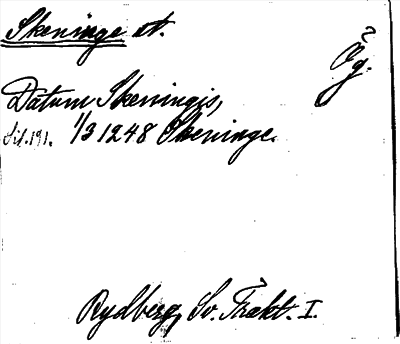 Skeninge st.
Ög.
Datum Skeningis,
Sid. 191. 1/3 1248 Skeninge.
Rydberg, Sv. Trakt. I.